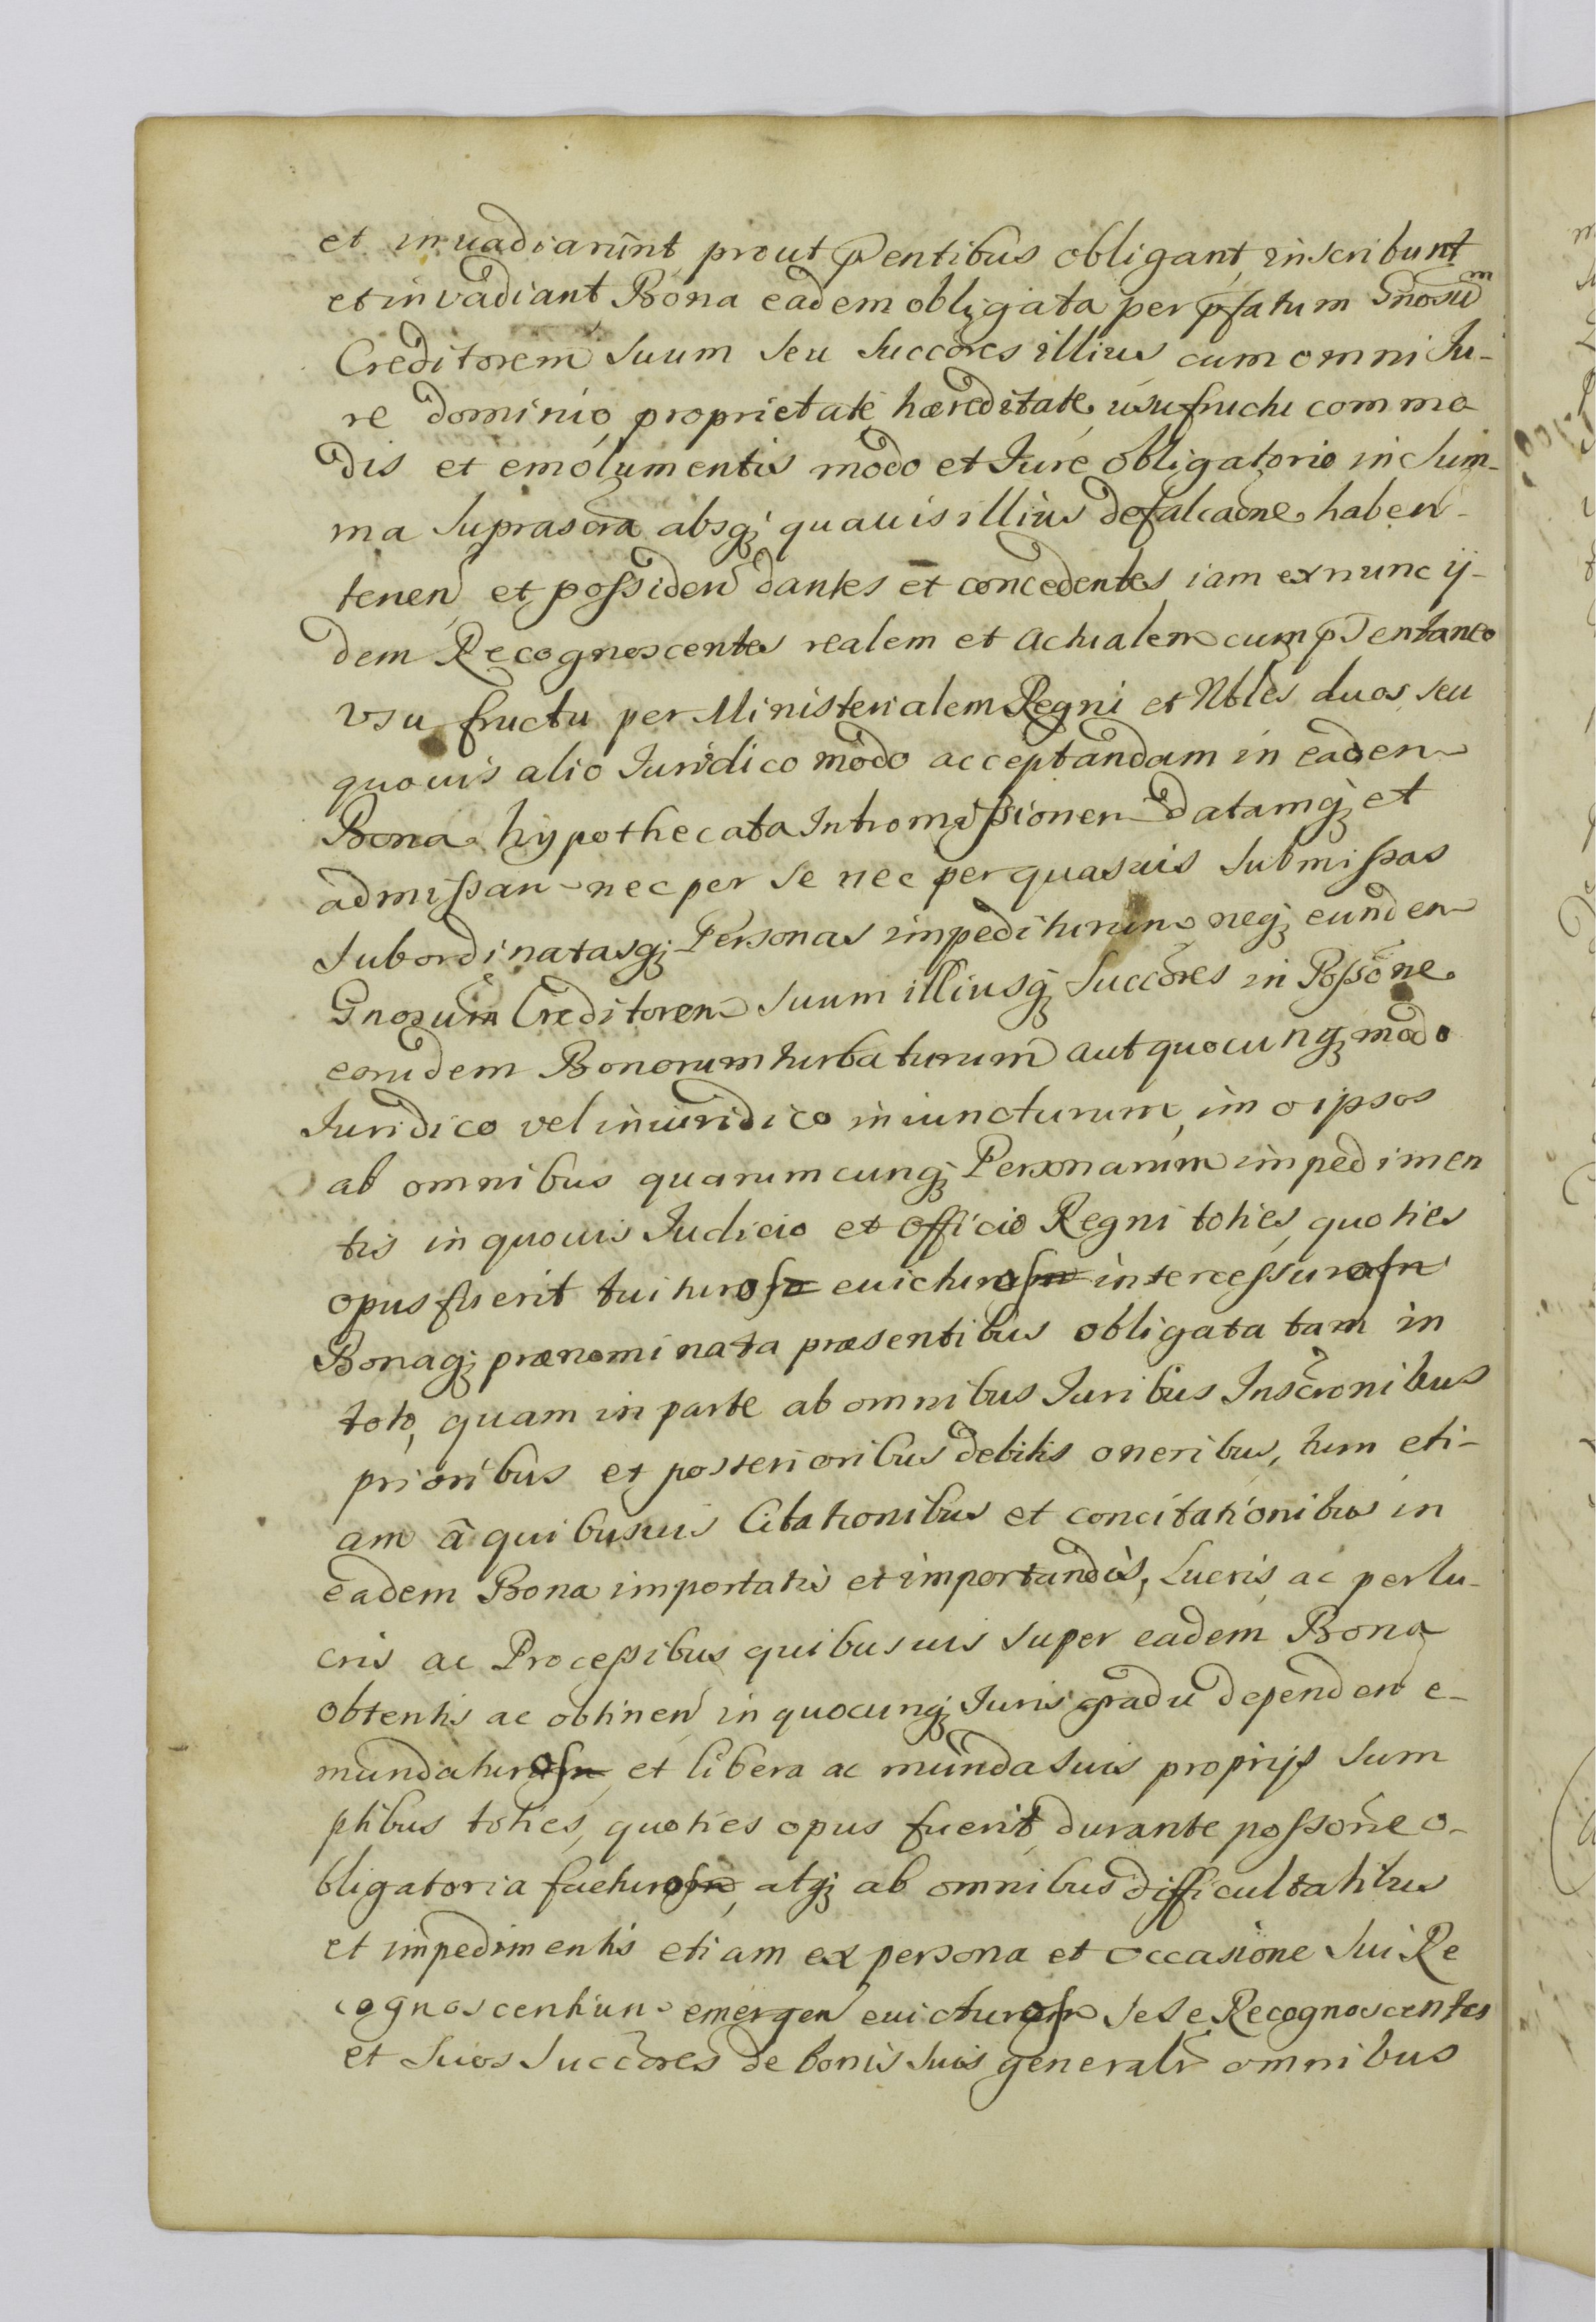 et inuadiarunt prout pñtibus obligant, inscribunt
et invadiant Bona eadem obligata per pfatum Gnosum
Creditorem suum seu succores illius cum omni Iu-
re dominio, proprietate, hæreditate, usufructu commo
dis et emolumentis modo et Iure obligatorio in sum-
ma suprascra absq; quauis illius defalcaone haben-
tenen, et possiden dantes et concedentes iam ex nunc ij-
dem Recognoscentes realem et actualem cum pñtaneo
vsu fructu per Ministerialem Regni et Nbles duos, seu
quouis alio Iuridico modo acceptandam in eadem
Bona hypothecata Intromissionem datamq; et
admissam nec per se nec per quasuis submissas
subordinatasq; Personas impediturum neq; eundem
Gnosum Creditorem suum illiusq; succores in Possone
eorudem Bonorum turbaturum aut quocunq; modo
Iuridico vel iniuridico iniuncturum, imo ipsos
ab omnibus quarumcunq; Personarum impedimen
tis in quouis Iudicio et Officio Regni toties, quoties
opus fuerit tuituros euicturos intercessuros
Bonaq; prænominata præsentibus obligata tam in
toto, quam in parte ab omnibus Iuribus Inscronibus
prioribus et posterioribus debitis oneribus, tum eti-
am à quibusuis Citationibus et concitationibus in
eadem Bona importatis et importandis, Lucris, ac perlu-
cris ac Processibus quibusuis super eadem Bona
obtentis ac obtinen in quocunq; Iuris gradu dependen e-
mundaturos et libera ac munda suis proprijs sum
ptibus toties, quoties opus fuerit, durante possone o-
bligatoria facturos, atq; ab omnibus difficultatibus
et impedimentis etiam ex persona et occasione sui Re
cognoscentium emergen euicturos sese Recognoscentes
et suos succores de bonis suis generalr omnibus